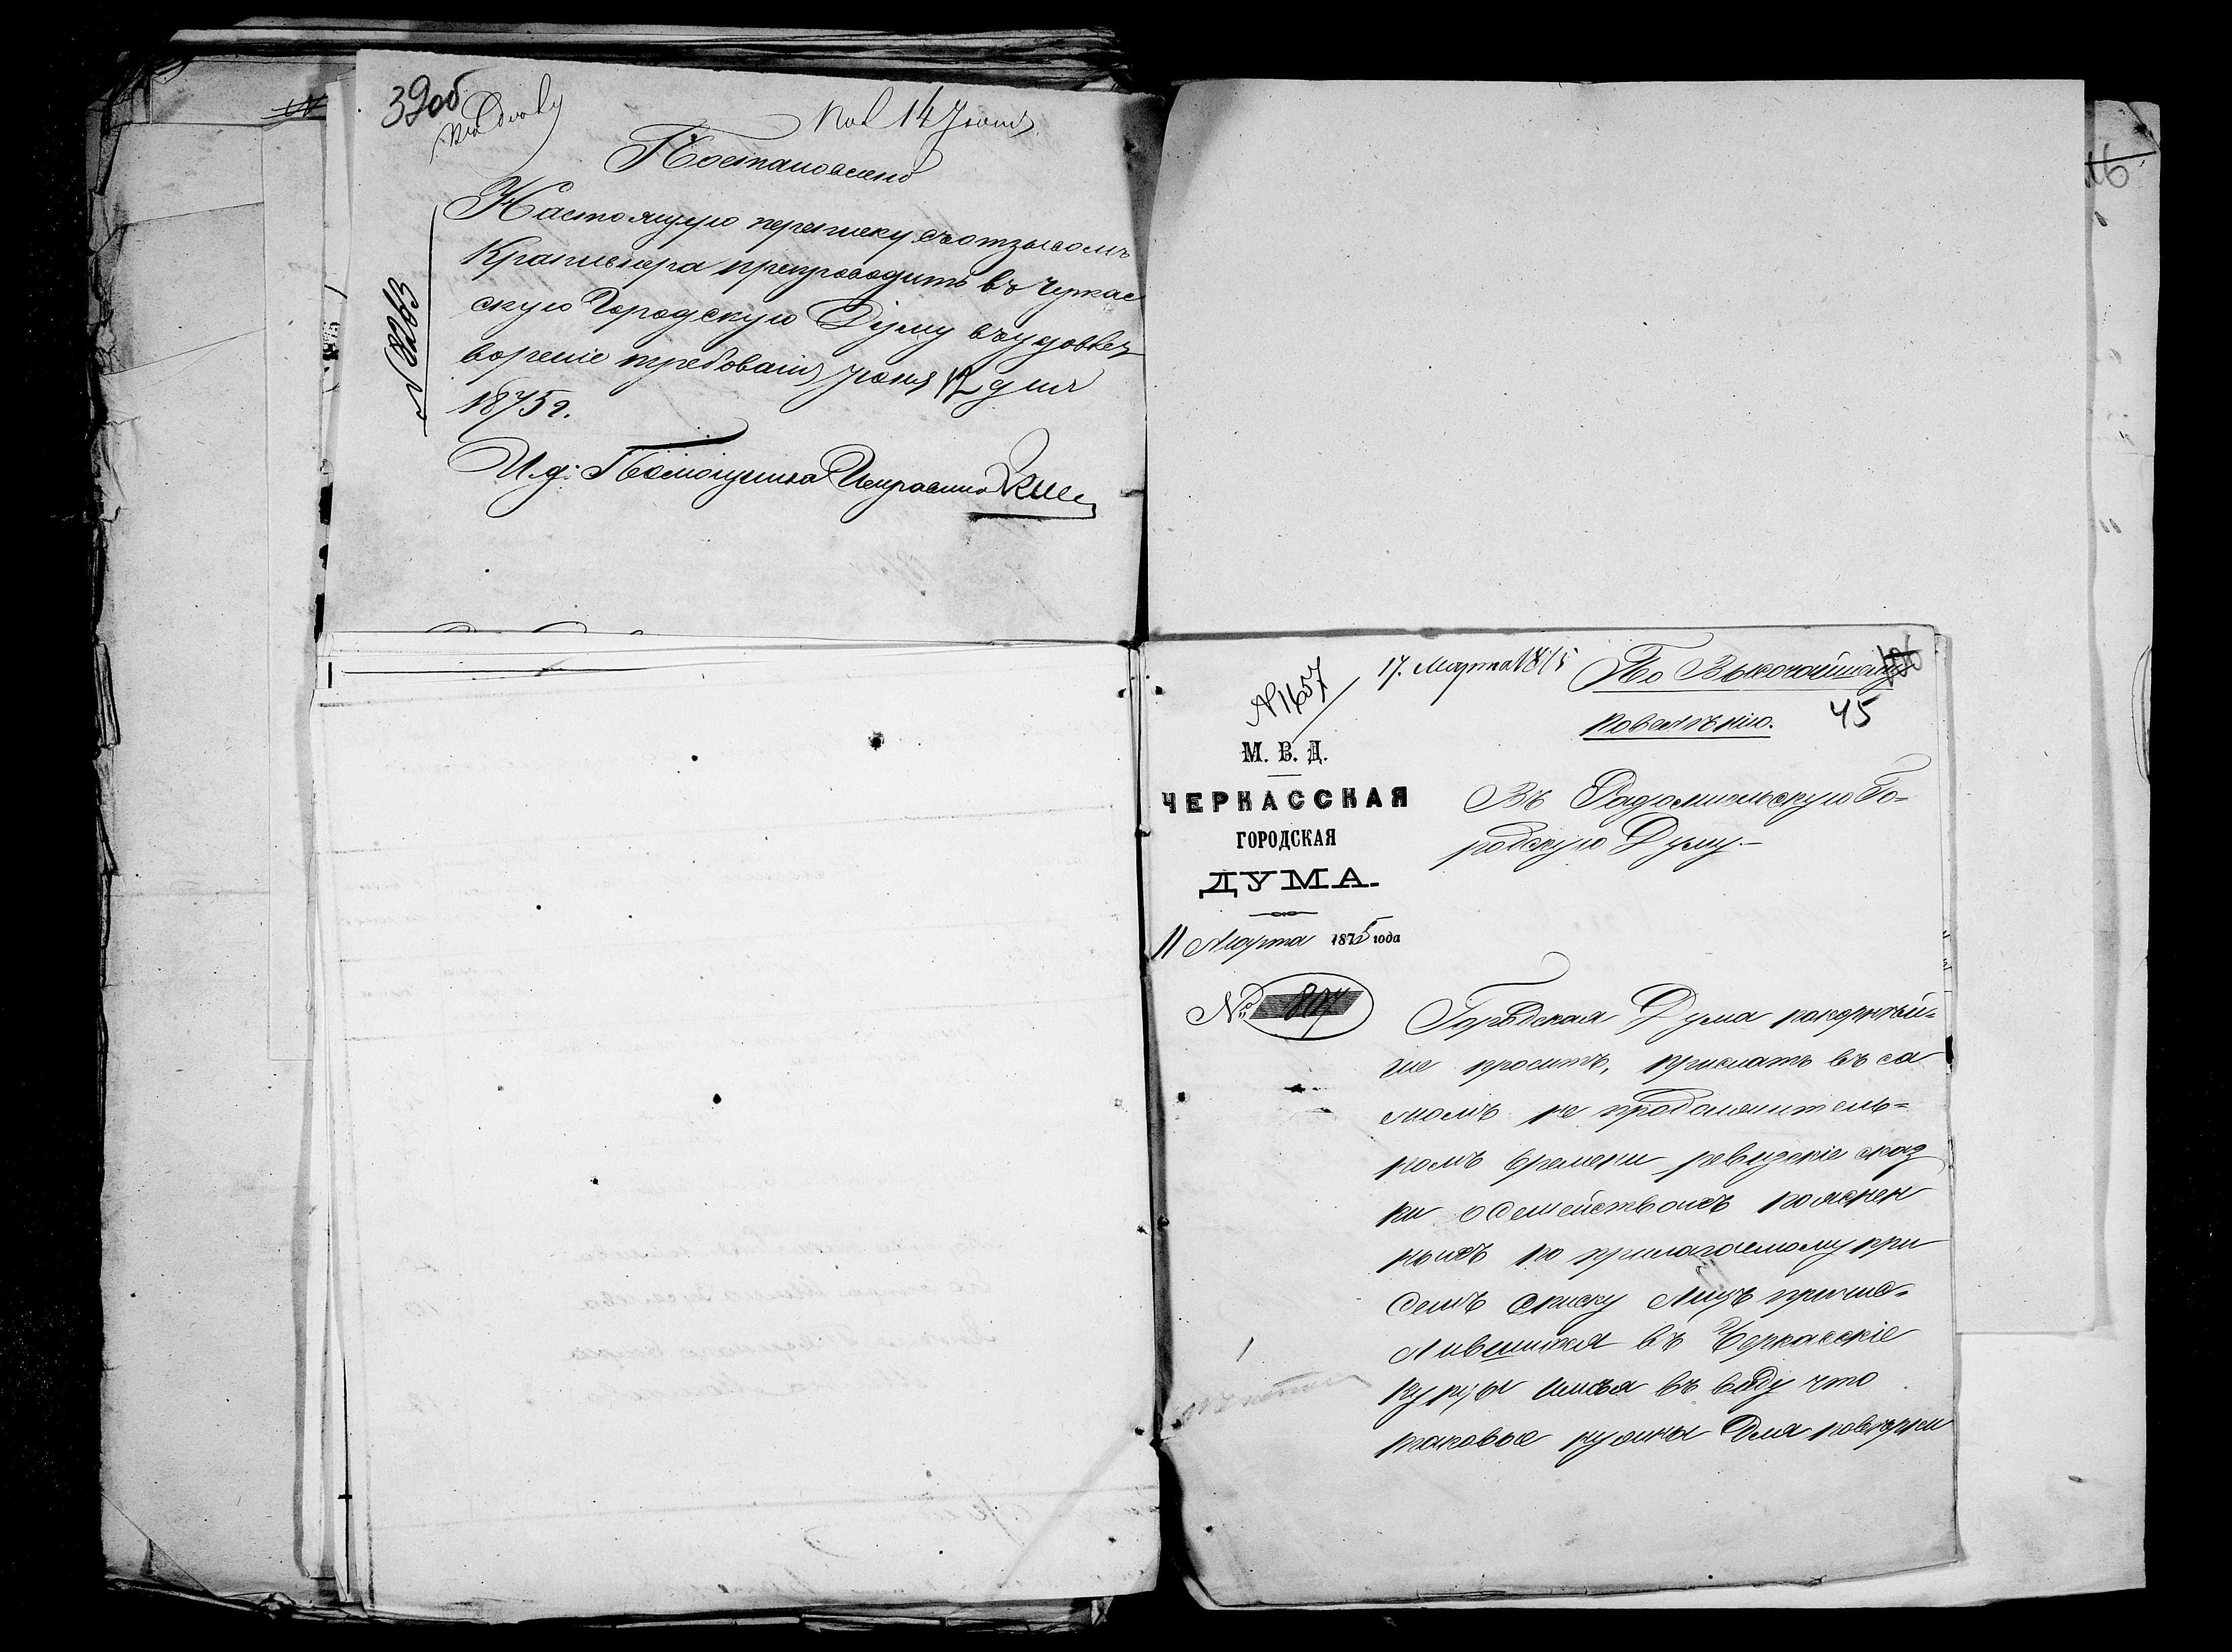 39об
Пол. 14 Іюня
Постановлено
Настоящую переписку съ отзывомъ
препроводить въ Черкас
скую Городскую Думу въ удовлет
вореніе требованія Іюня 12 дня
1875 г.
И. д. Помощника Исправника
16
N 1657
17. Марта 1875
По Высочайшему
повелѣнію.
45
М. В. Д.
ЧЕРКАССКАЯ
ГОРОДСКАЯ
ДУМА.
11 Марта 1875 года
№ 807
Въ Радомысльскую Го-
родскую Думу.-
Городская Дума покорнѣй-
ше проситъ, прислать въ са
момъ не продолжитель-
номъ времени ревизскіе сказ
ки о семействахъ поясненныхъ
по прилагаемому при
семъ списку лицъ причис-
лившихся въ Черкасскіе
купцы имѣя въ виду что
таковые нужны для повѣрки